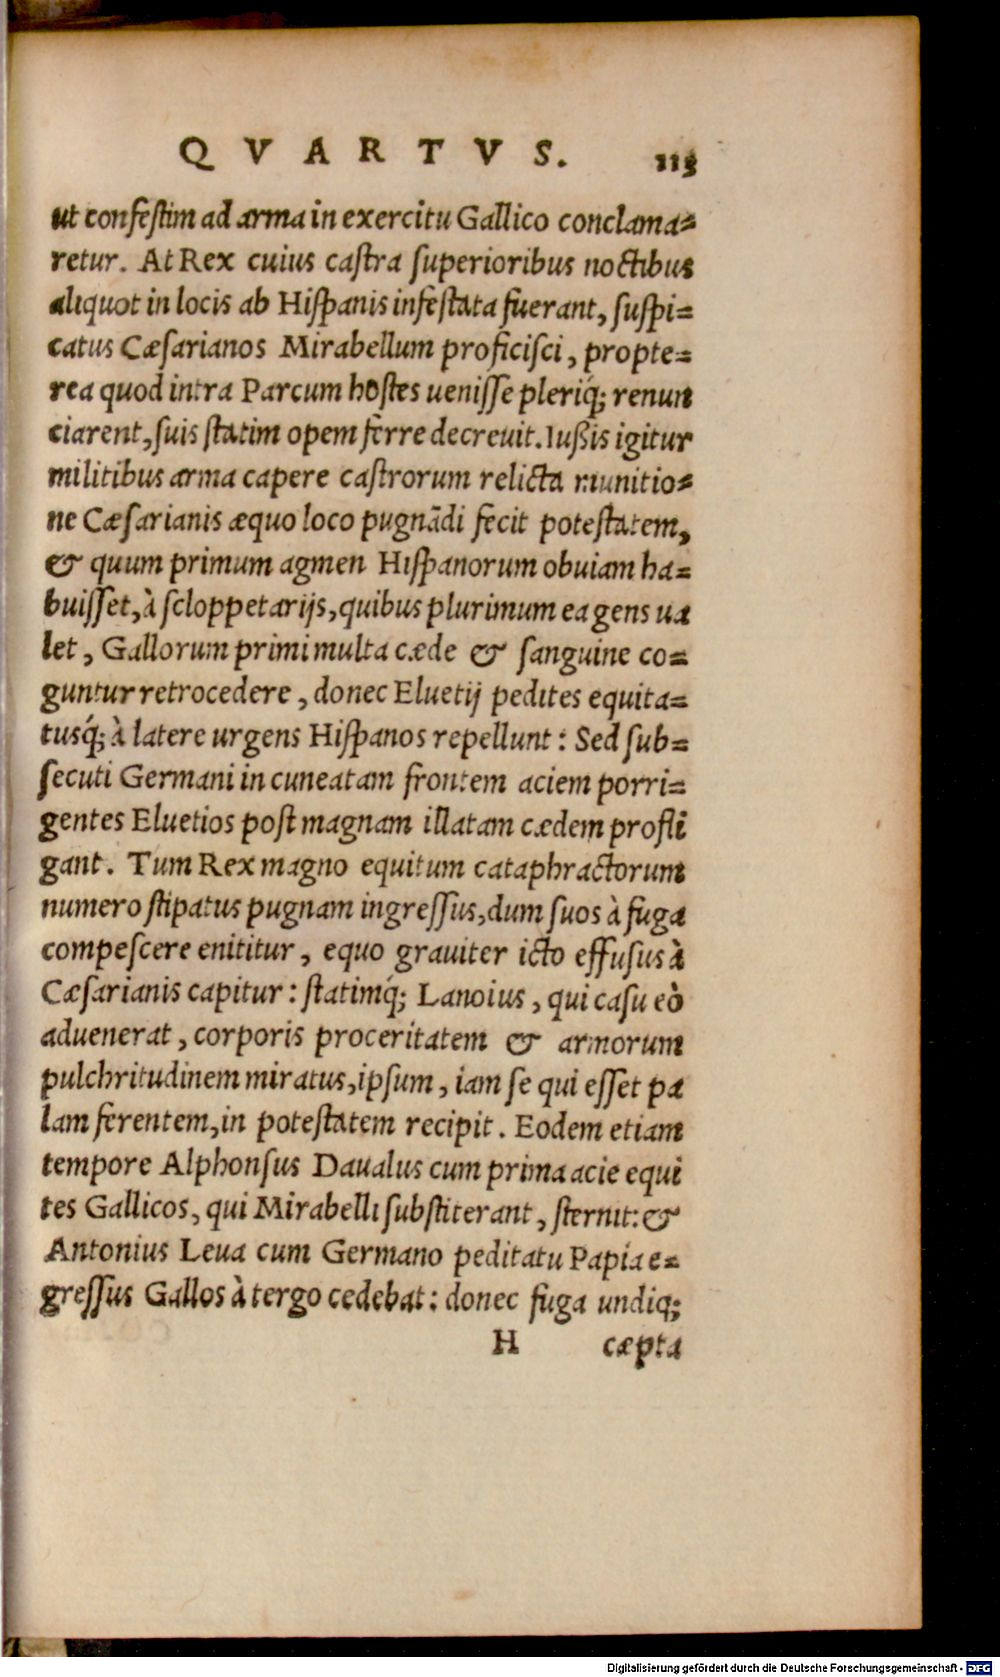 QVARTVS. 113
ut confestim ad arma in exercitu Gallico conclama=
retur. At Rex cuius castra superioribus noctibus
aliquot in locis ab Hispanis infestata fuerant, suspi=
catus Cæsarianos Mirabellum proficisci, propte=
rea quod intra Parcum hostes uenisse pleriq́; renun
ciarent, suis statim opem ferre decreuit. Iußis igitur
militibus arma capere castrorum relicta munitio=
ne Cæsarianis æquo loco pugnãdi fecit potestatem,
& quum primum agmen Hispanorum obuiam ha=
buisset, à scloppetarijs, quibus plurimum ea gens ua
let, Gallorum primi multa cæde & sanguine co=
guntur retrocedere, donec Eluetij pedites equita=
tusq́; à latere urgens Hispanos repellunt: Sed sub=
secuti Germani in cuneatam frontem aciem porri=
gentes Eluetios post magnam illatam cædem profli
gant. Tum Rex magno equitum cataphractorum
numero stipatus pugnam ingressus, dum suos à fuga
compescere enititur, equo grauiter icto effusus à
Cæsarianis capitur: statimq́; Lanoius, qui casu eò
aduenerat, corporis proceritatem & armorum
pulchritudinem miratus, ipsum, iam se qui esset pa
lam ferentem, in potestatem recipit. Eodem etiam
tempore Alphonsus Daualus cum prima acie equi
tes Gallicos, qui Mirabelli substiterant, sternit: &
Antonius Leua cum Germano peditatu Papia e=
gressus Gallos à tergo cedebat: donec fuga undiq;
H cæpta
Digitalisierung gefördert durch die Deutsche Forschungsgemeinschaft - DFG